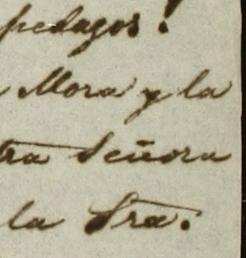 pedagos!
Mora y la
tra Señora
la Sra.